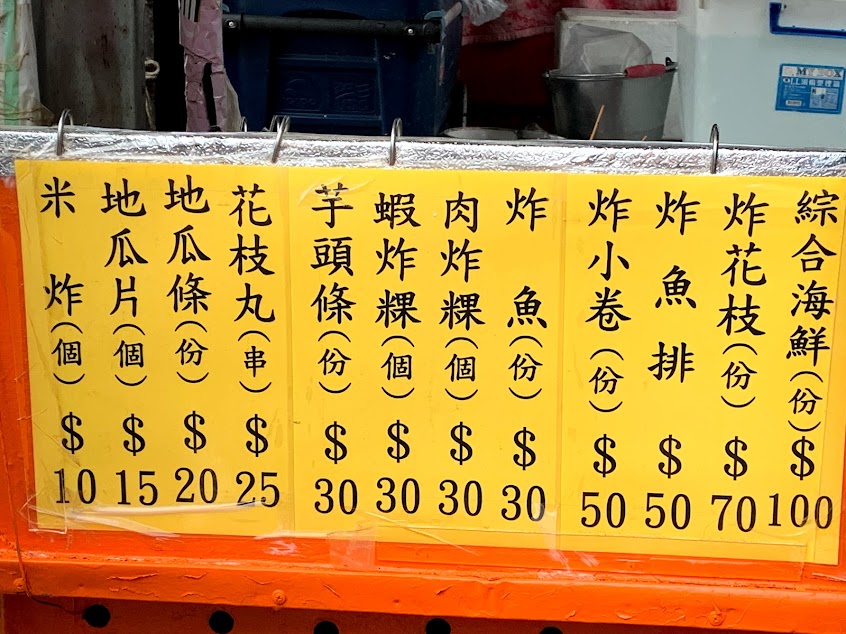 綜合海鮮(份)$100
炸花枝(份)$70
炸魚排$50
炸小卷(份)$50
炸魚(份)$30
肉炸粿(個)$30
蝦炸粿(個)$30
芋頭條(份)$30
花枝丸(串)$25
地瓜條(份)$20
地瓜片(個)$15
米炸(個)$10